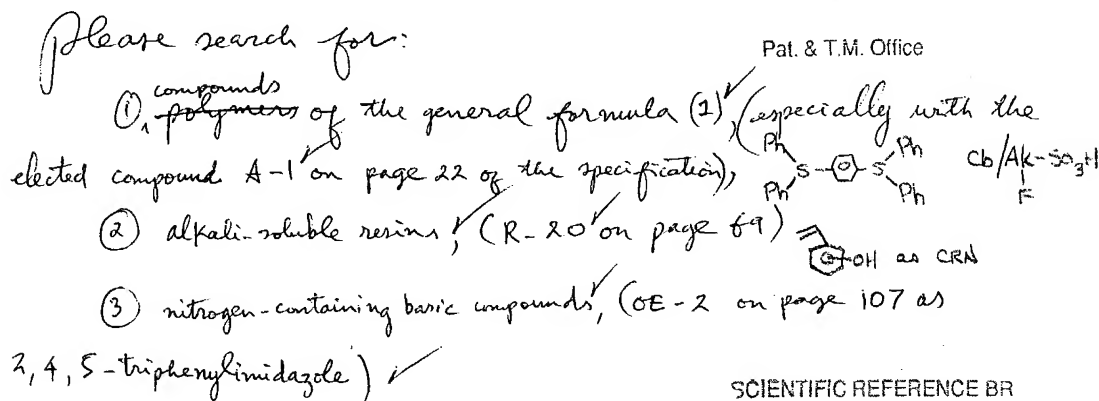 Please search for:
Pat. & T.M. Office
compounds
①, polymers of the general formula (1), (especially with the
elected compound A-1 on page 22 of the specification),
Ph Ph
S S
Ph Ph
Cb/Ak-SO3H
F
② alkali-soluble resins, (R-20 on page 69)
OH as CRN
③ nitrogen-containing basic compounds, (OE-2 on page 107 as
2,4,5-triphenylimidazole)
SCIENTIFIC REFERENCE BR